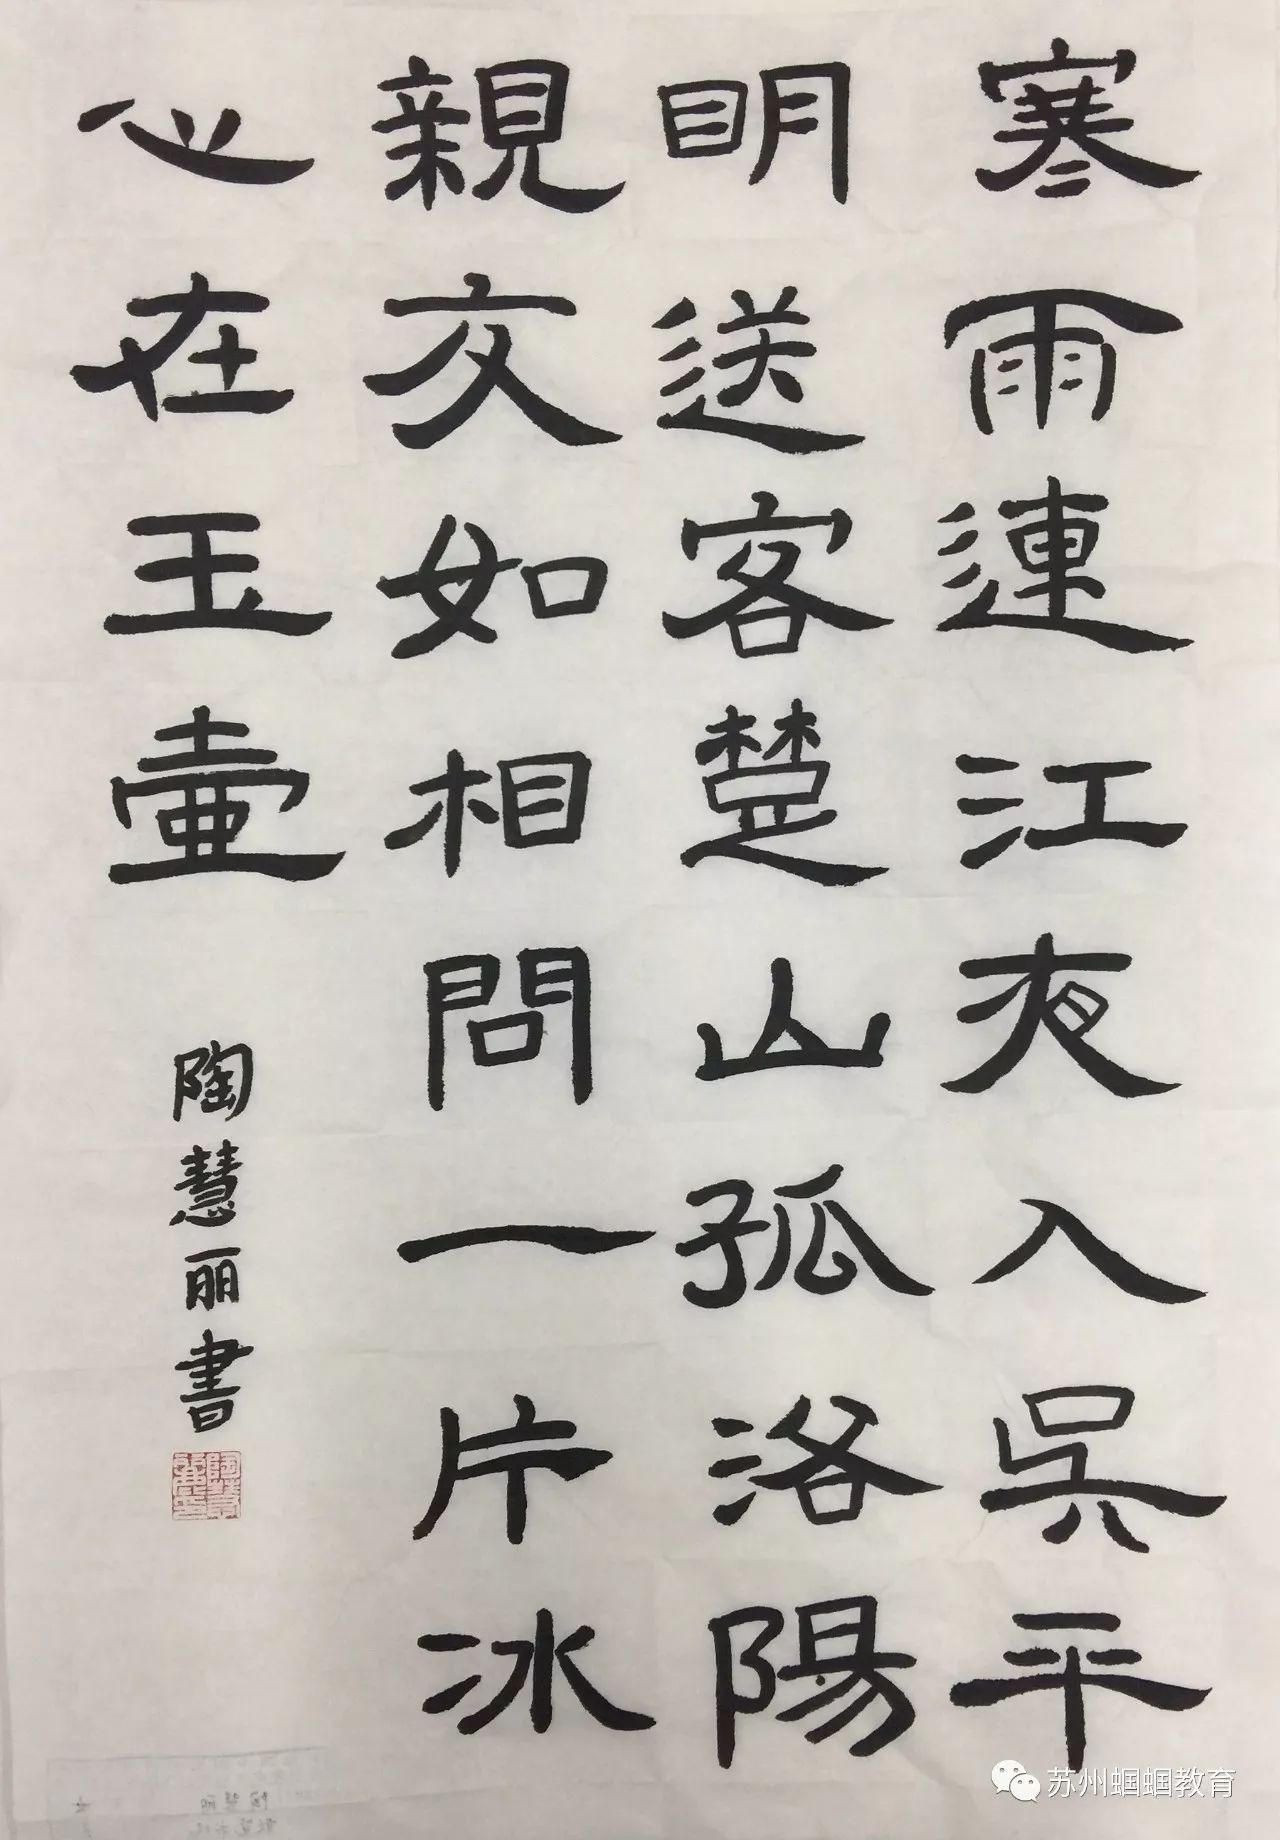 寒雨連江夜入吳平
明送客楚山孤洛陽
親友如相問一片冰
心在玉壺
陶慧丽書
苏州蝈蝈教育